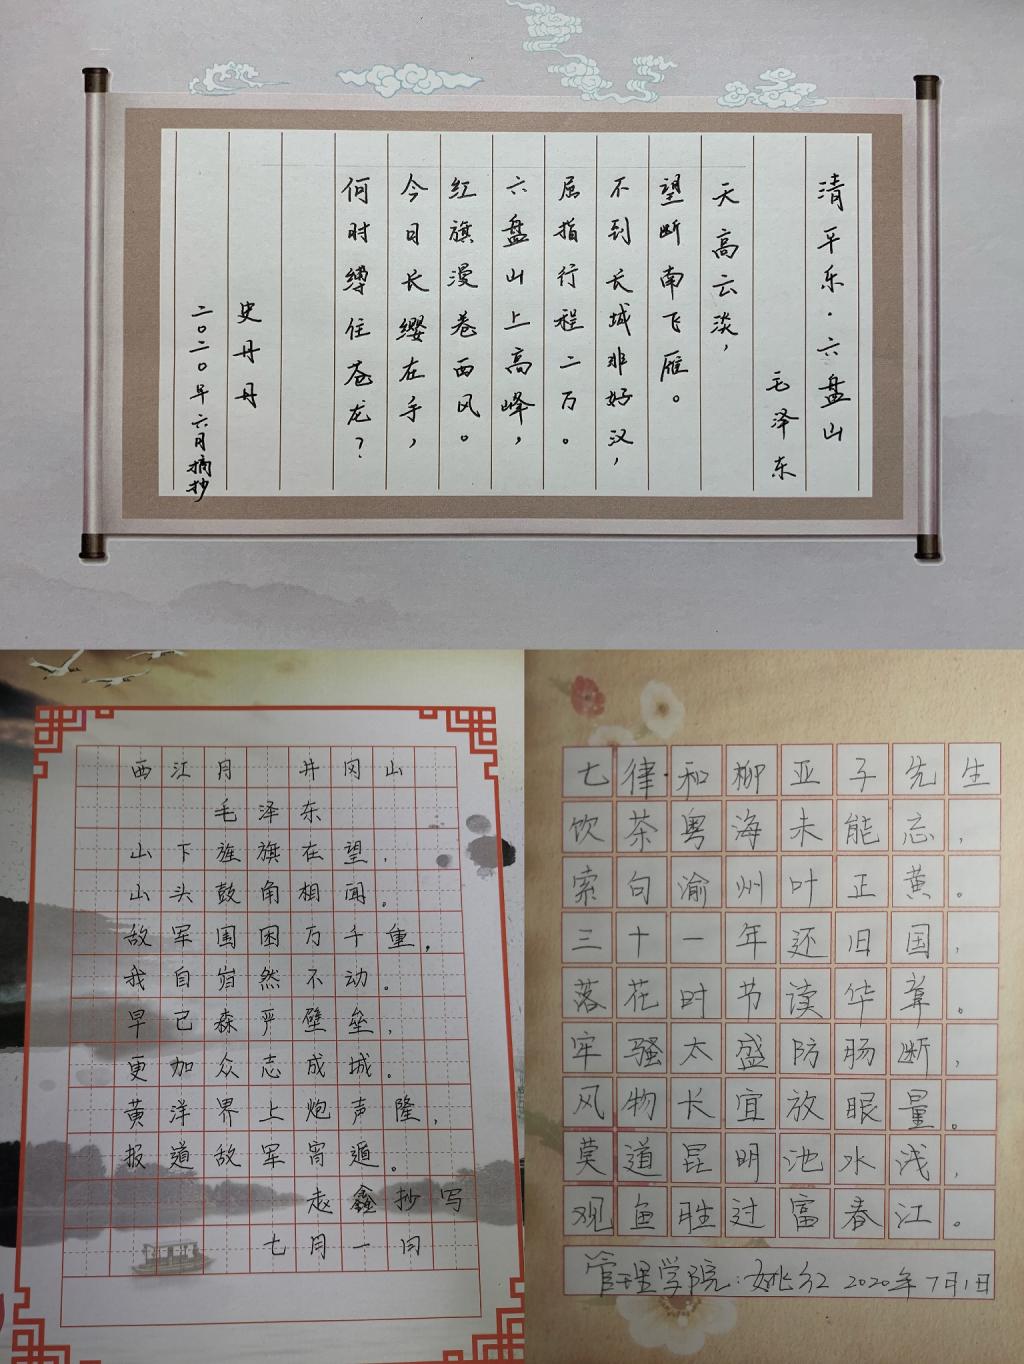 清平乐·六盘山
毛泽东
天高云淡，
望断南飞雁。
不到长城非好汉，
屈指行程二万。
六盘山上高峰，
红旗漫卷西风。
今日长缨在手，
何时缚住苍龙？
史丹丹
二〇二〇年六月摘抄
西江月 井冈山
毛泽东
山下旌旗在望，
山头鼓角相闻。
敌军围困万千重，
我自岿然不动。
早已森严壁垒，
更加众志成城。
黄洋界上炮声隆，
报道敌军宵遁。
赵鑫抄写
七月一日
七律·和柳亚子先生
饮茶粤海未能忘，
索句渝州叶正黄。
三十一年还旧国，
落花时节读华章。
牢骚太盛防肠断，
风物长宜放眼量。
莫道昆明池水浅，
观鱼胜过富春江。
管理学院：姚红 2020年7月1日